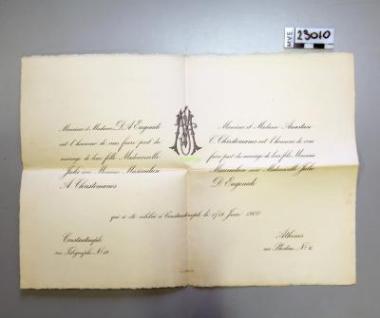 MVE
23010
Monsieur et Madame D. A. Eugenidi
ont l'honneur de vous faire part du
mariage de leur fille Mademoiselle
Julie avec Monsieur Maximilien
A. Christomanos
Monsieur et Madame Anastase
C. Christomanos ont l'honneur de vous
faire part du mariage de leur fils Monsieur
Maximilien avec Mademoiselle Julie
D. Eugenidi
qui a été célébré à Constantinople le Juin
Constantinople
rue Télégraphe No
Athènes
rue No